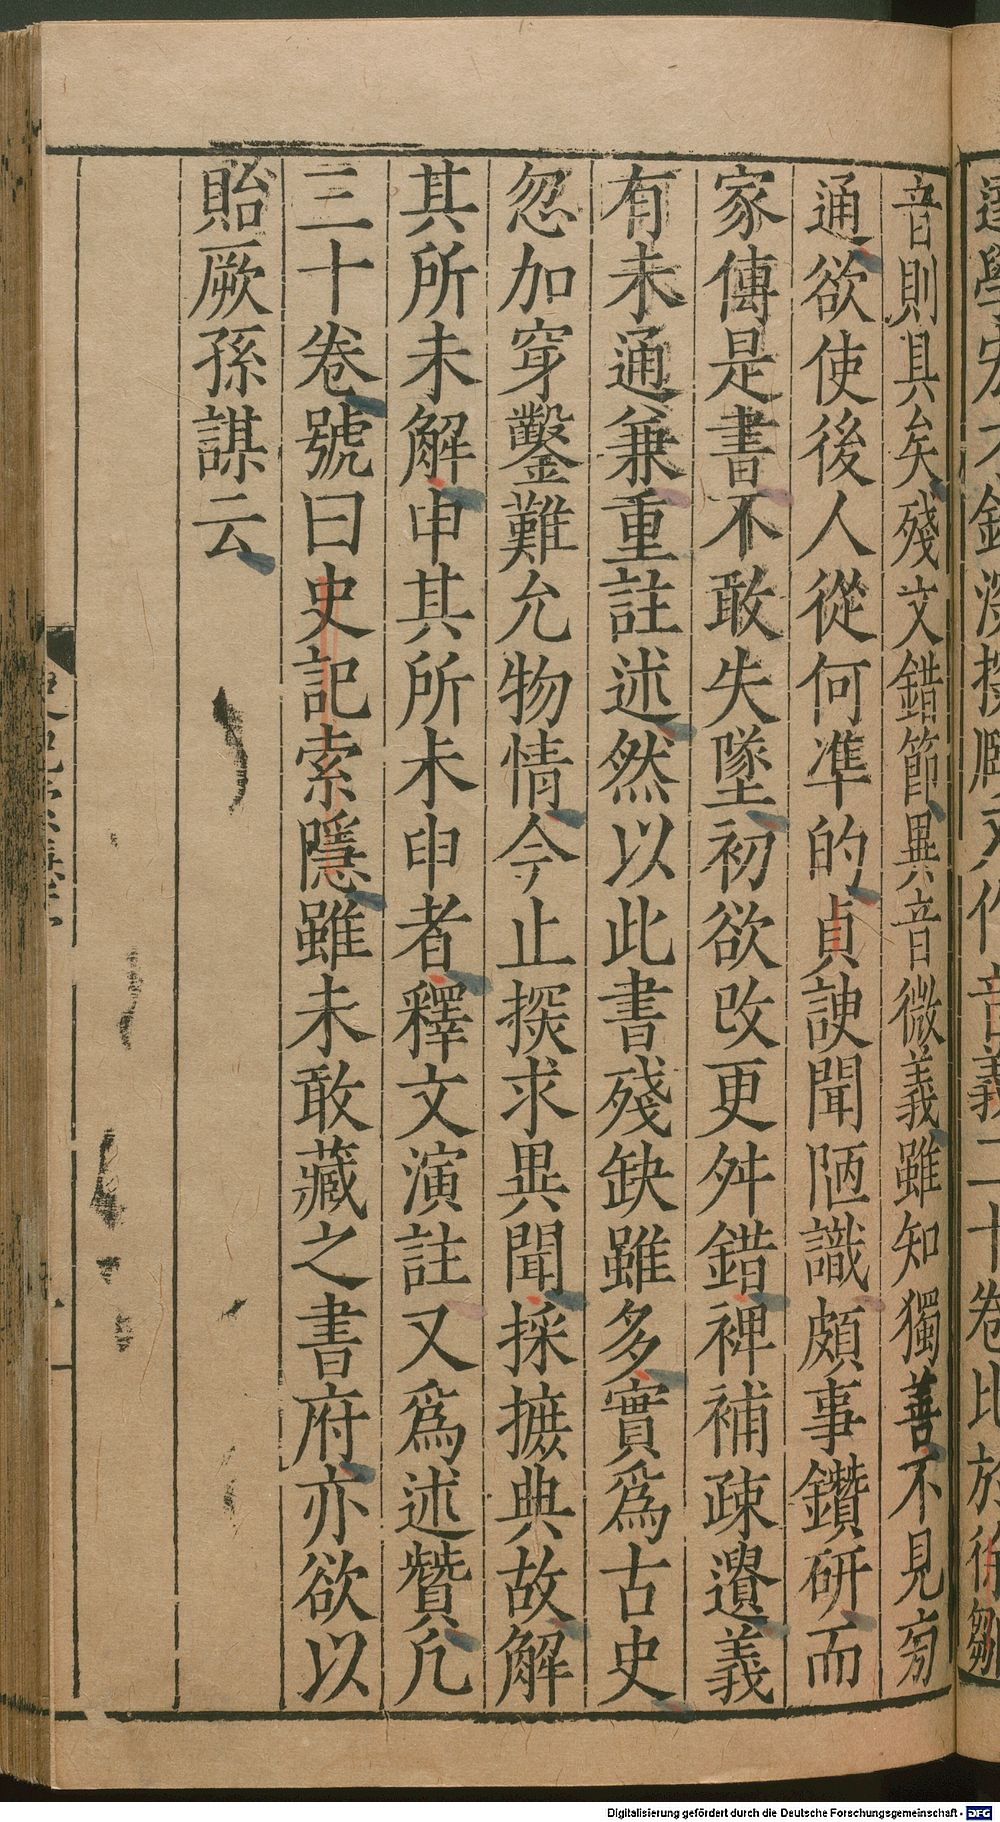 音則具矣殘文錯節異音微義雖知獨善不見旁
通欲使後人從何凖的貞諛聞陋識頗事鑽研而
家傳是書不敢失墜初欲改更舛錯裨補疎遺義
有未通兼重註述然以此書殘缺雖多實爲古史
忽加穿鑿難允物情今止探求異聞採摭典故解
其所未解申其所未申者釋文演註又爲述贊凡
三十卷號曰史記索隱雖未敢藏之書府亦欲以
貽厥孫謀云
Digitalisierung gefördert durch die Deutsche Forschungsgemeinschaft - DFG